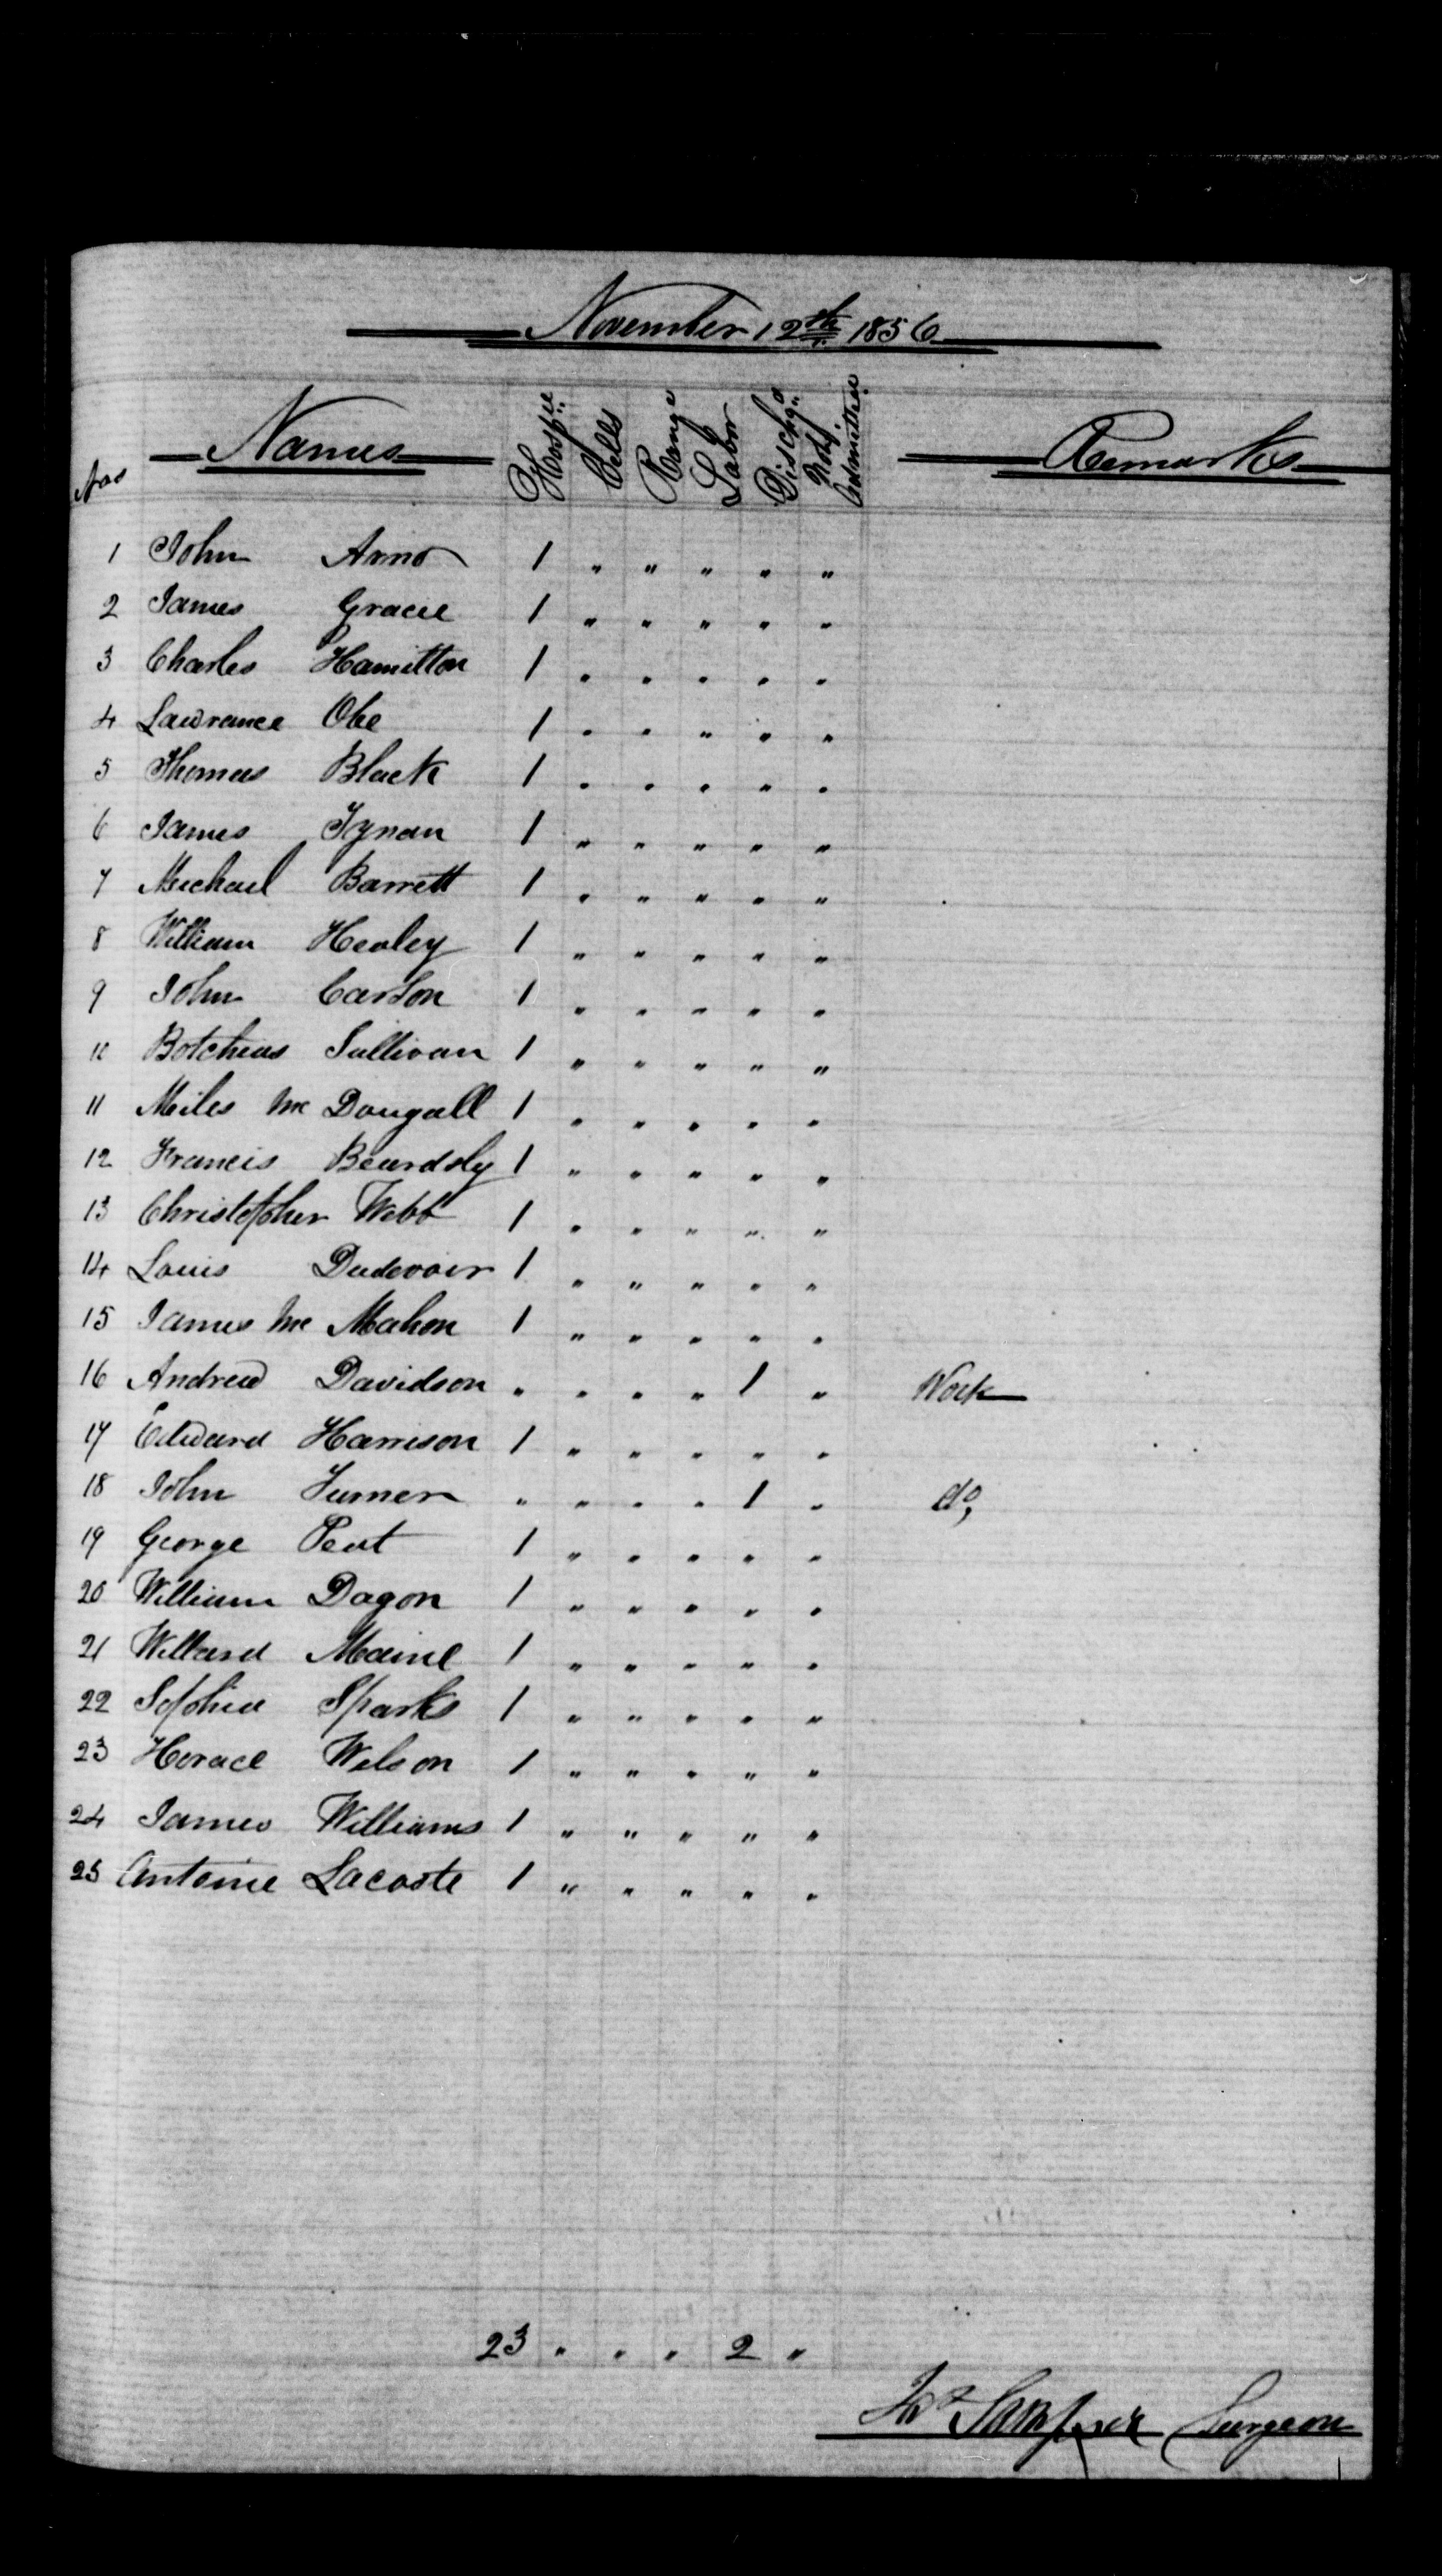 November 12th 1856
Nos Names Hospte Cells Range Labor Dischgd Not admitted Remarks
1 John Arno 1 " " " " "
2 James Gracie 1 " " " " "
3 Charles Hamilton 1 " " " " "
4 Lawrance Obe 1 " " " " "
5 Thomas Black 1 " " " " "
6 James Tynan 1 " " " " "
7 Michael Barrett 1 " " " " "
8 William Healey 1 " " " " "
9 John Carson 1 " " " " "
10 Botcheas Sullivan 1 " " " " "
11 Miles Mc Dougall 1 " " " " "
12 Francis Beardsly 1 " " " " "
13 Christopher Webb 1 " " " " "
14 Louis Dudevoir 1 " " " " "
15 James Mc Mahon 1 " " " " "
16 Andrew Davidson " " " " 1 " Work
17 Edward Harrison 1 " " " " "
18 John Turner " " " " 1 " do,
19 George Peut 1 " " " " "
20 William Dagon 1 " " " " "
21 Willard Maine 1 " " " " "
22 Sophia Sparks 1 " " " " "
23 Horace Wilson 1 " " " " "
24 James Williams 1 " " " " "
25 Antoine Lacoste 1 " " " " "
23 " " " 2 "
Jas Sampson Surgeon